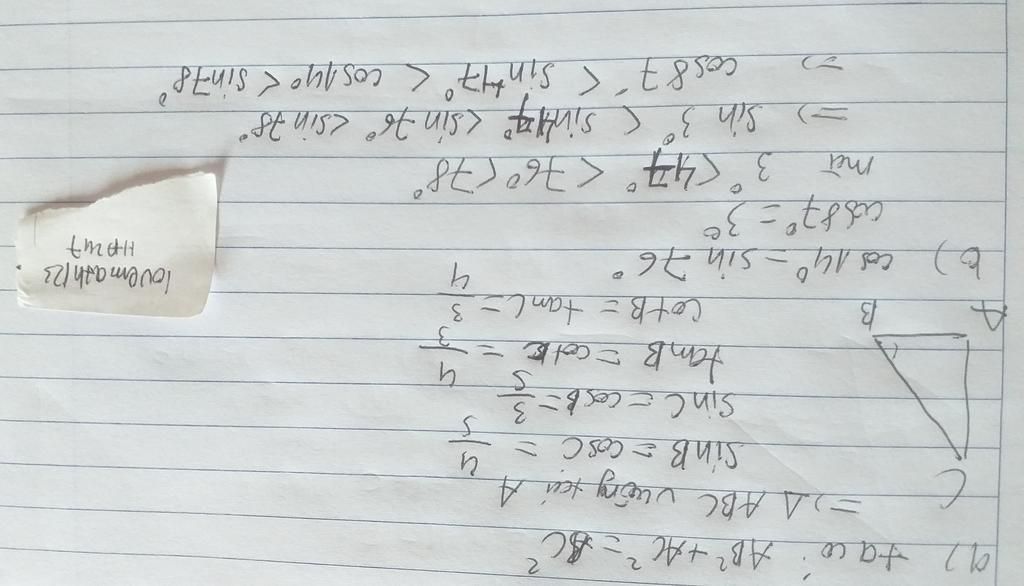 a) ta có: AB² + AC² = BC²
=> Δ ABC vuông tại A
sinB = cosC = 4/5
sinC = cosB = 3/5
tanB = cotC = 4/3
cotB = tanC = 3/4
C
A B
b) cos14° = sin 76°
cos87° = 3°
mà 3° < 47° < 76° < 78°
=> sin 3° < sin47° < sin 76° < sin 78°
=> cos87° < sin47° < cos14° < sin78°
lovemath123
HP247